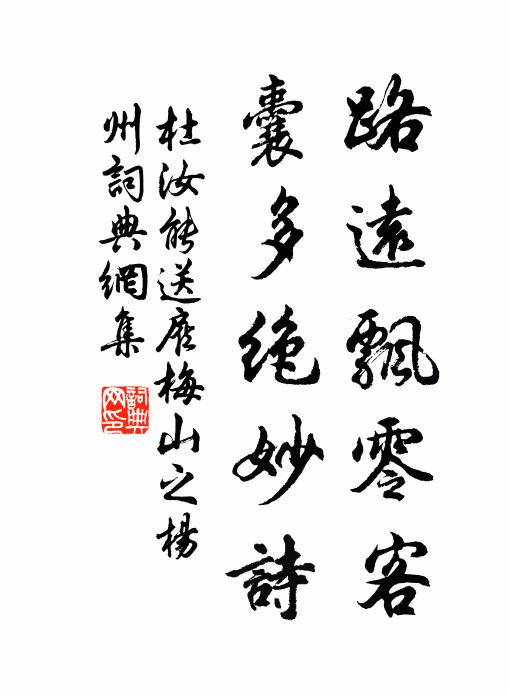 路遠飄零客
囊多絶妙詩
杜汝能送應梅山之楊
州詞典網集
詞典
网印